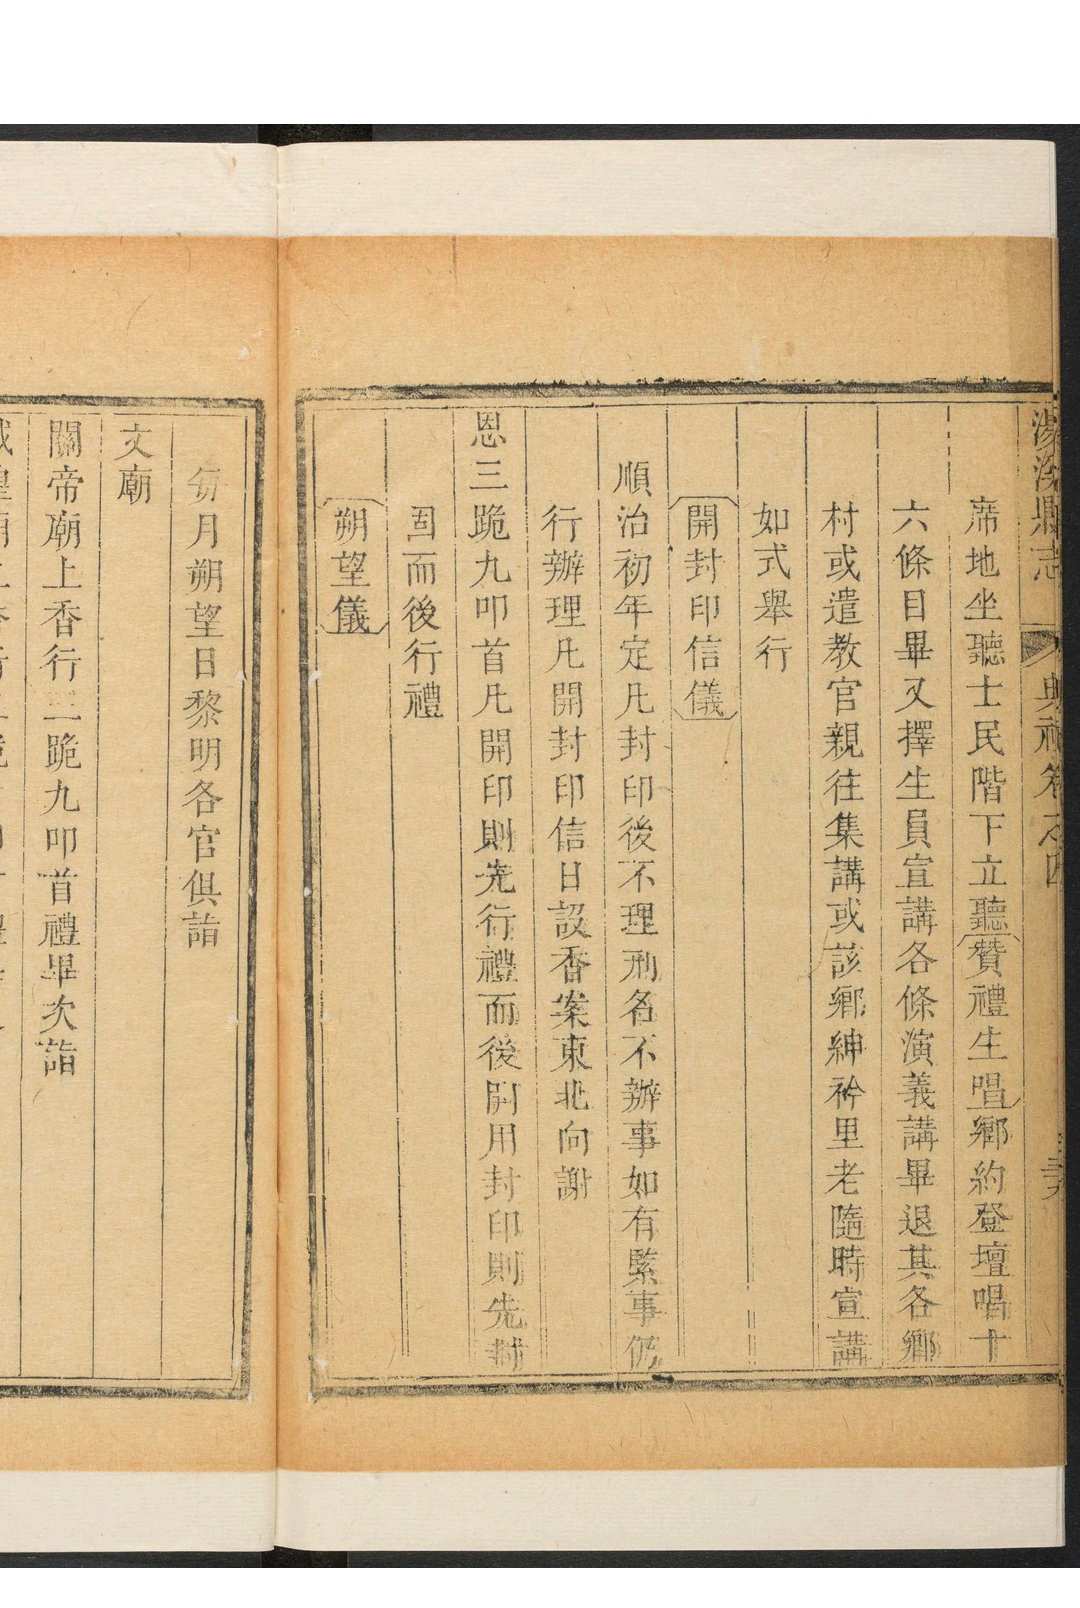 縣志 典禮卷之四
席地坐聽士民階下立聽贊禮生唱鄉約登壇唱十
六條目畢又擇生員宣講各條演義講畢退其各鄉
村或遣教官親往集講或該鄉紳衿里老隨時宣講
如式舉行
開封印信儀
順治初年定凡封印後不理刑名不辦事如有緊事仍
行辦理凡開封印信日設香案東北向謝
恩三跪九叩首凡開印則先行禮而後開用封印則先封
固而後行禮
朔望儀
每月朔望日黎明各官俱詣
文廟
關帝廟上香行三跪九叩首禮畢次詣